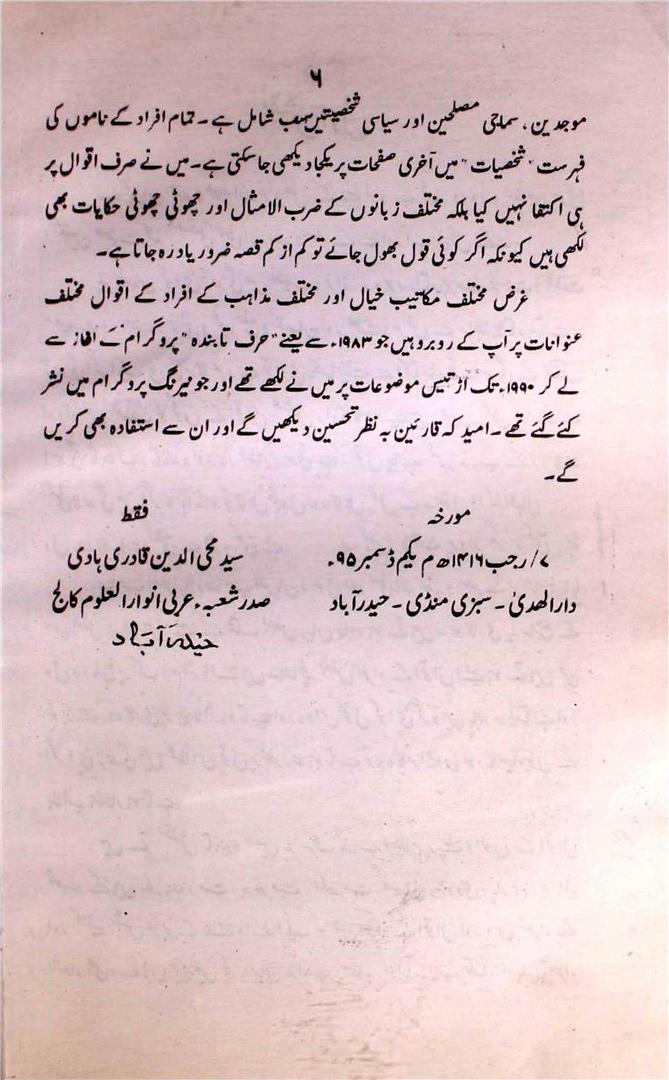 ۶
موجدین، سماجی مصلحین اور سیاسی شخصیتیں سب شامل ہے۔ تمام افراد کے ناموں کی
فہرست "شخصیات" میں آخری صفحات پر یکجا دیکھی جا سکتی ہے۔ میں نے صرف اقوال پر
ہی اکتفا نہیں کیا بلکہ مختلف زبانوں کے ضرب الامثال اور چھوٹی چھوٹی حکایات بھی
لکھی ہیں کیونکہ اگر کوئی قول بھول جائے تو کم از کم قصہ ضرور یاد رہ جاتا ہے۔
غرض مختلف مکاتیب خیال اور مختلف مذاہب کے افراد کے اقوال مختلف
عنوانات پر آپ کے روبرو ہیں جو ۱۹۸۳ء سے یعنے "حرف تابندہ" پروگرام کے آغاز سے
لے کر ۱۹۹۰ء تک اڑتیس موضوعات پر میں نے لکھے تھے اور جو نیرنگ پروگرام میں نشر
کئے گئے تھے۔ امید کہ قارئین بہ نظر تحسین دیکھیں گے اور ان سے استفادہ بھی کریں
گے۔
مورخہ فقط
۷/ رجب ۱۴۱۶ھ م یکم ڈسمبر ۹۵ء سید محی الدین قادری ہادی
دارالھدیٰ۔ سبزی منڈی۔ حیدرآباد صدر شعبہء عربی انوارالعلوم کالج
حیدرآباد